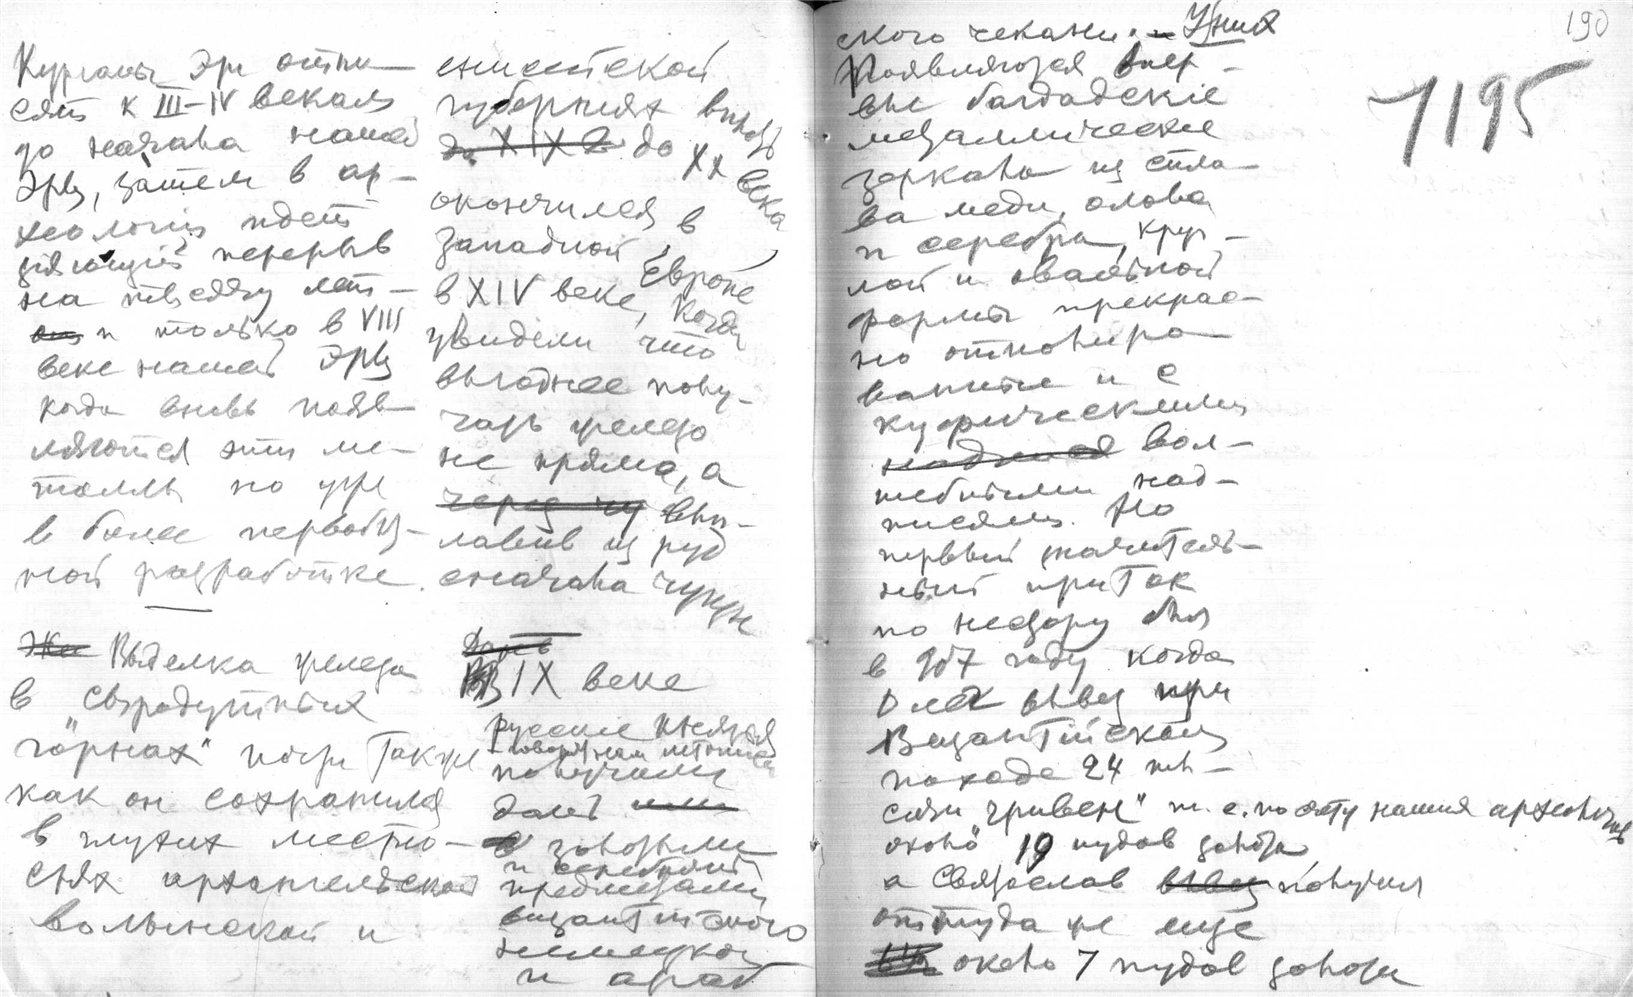 Курганы эры отно-
сят к III-IV векам
до начала нашей
эры, затем в ар-
хеологии идет
зияющий перерыв
на тысячу лет -
и только в VIII
веке нашей эры
когда вновь появ-
ляются эти ме-
таллы но уже
в более первобыт-
ной разработке.
Выделка железа
в сыродутных
"горнах" почти также
как он сохранился
в глухих местно-
стях архангельской
волынской и
енисейской
губерниях вплоть
до XIX в до XX века
окончился в
западной Европе
в XIV веке, когда
увидели что
выгоднее полу-
чать железо
не прямо, а
через чу вып-
лавив из руд
сначала чугун
Дань
В IX веке
русские князья
говорят нам летописи
получали
дань
золотыми
и серебряными
предметами
византийского
немецкого
и араб
190
ского чекана. - У них
Появляются впер-
вые багдадские
металлические
зеркала из спла-
ва меди, олова
и серебра, круг-
лой и овальной
формы прекрас-
но отполиро-
ванные и с
куфическими
вол-
шебными над-
писями. Но
первый значитель-
ный приток
по несторy был
в 907 году когда
Олег взял при
Византийском
походе 24 ты-
сячи "гривен" т. е. по счету наших археологов
около 19 пудов золота
а Святослав взял получил
оттуда же еще
около 7 пудов золота
1195